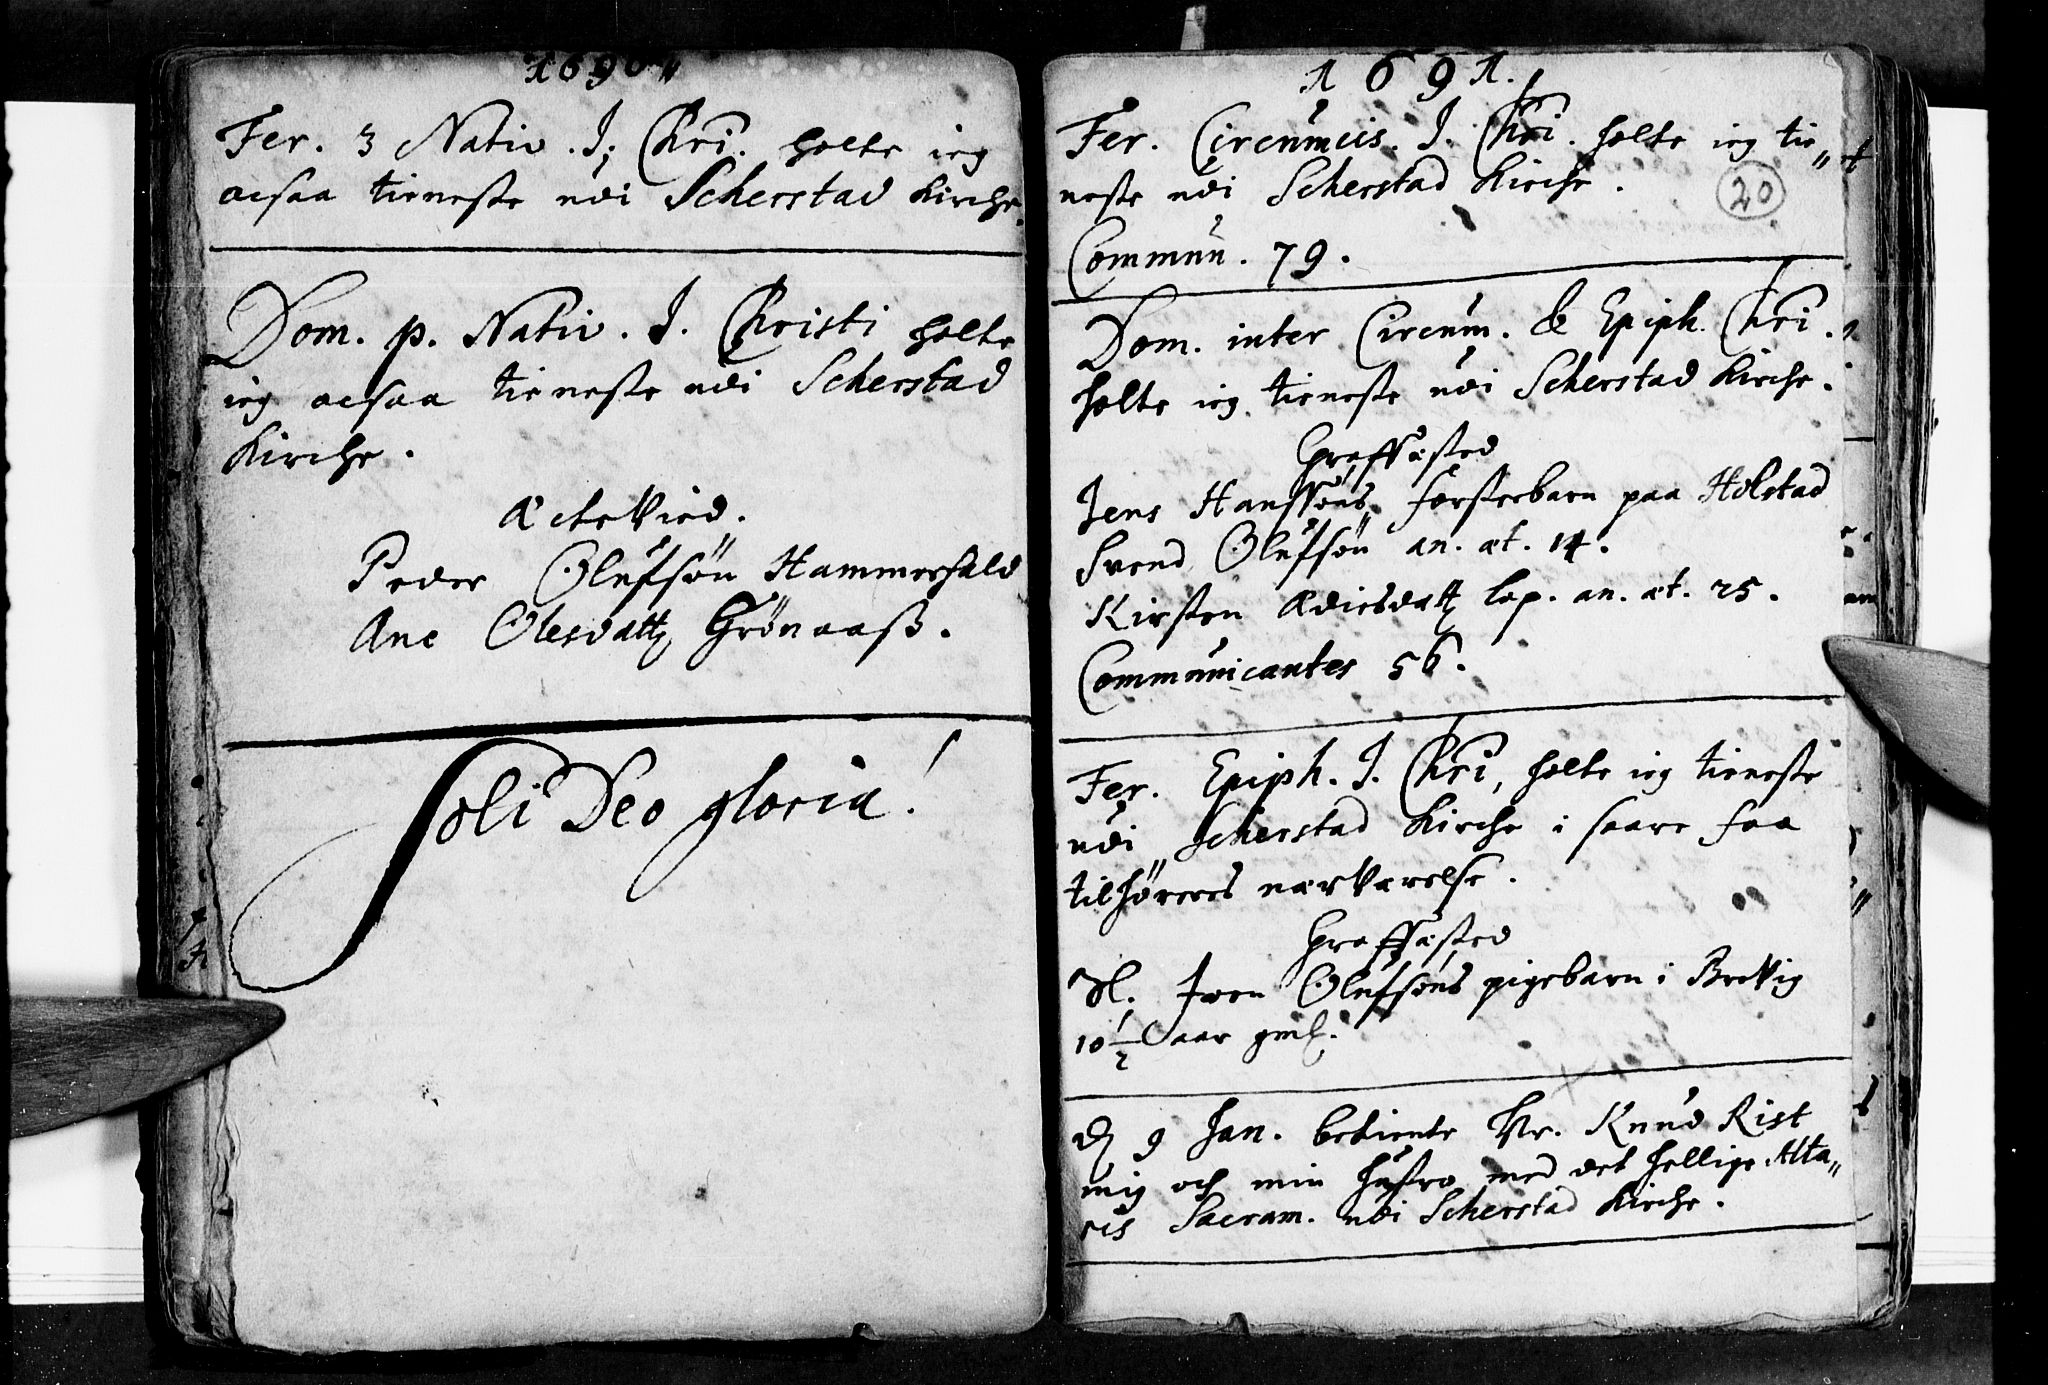 1690"
Fer. 3 Nativ. J. Chri. holte ieg
ocsaa tieneste udi Scherstad Kirche.
Dom. p. Nativ. J. Christi holte
ieg ocsaa tieneste udi Scherstad
Kirche.
Ectevied.
Peder Olufsøn Hammerfald
Ane Olesdatt Grønaaß.
Soli Deo gloria!
1691.
Fer. Circumcis. J. Chri. holte ieg tie"
neste udi Scherstad Kirche.
20
Commun. 79.
Dom. inter Circum. & Epiph. Chri.
holte ieg tieneste udi Scherstad Kirche.
Graffæsted
Jens Hanssøns fosterbarn paa Holstad
Svend Olufsøn an. æt. 14.
Kirsten datt lap. an. æt. 25.
Communicantes 56.
Fer. Epiph. J. Chri, holte ieg tieneste
udi Scherstad Kirche i saare faa
tilhøreres nærværelse.
Graffæsted
Sl. Iven Olufsøns pigebarn i Brevig
10 1/2 aar gml.
D 9 Jan. betiente Hr. Knud Rist
mig och min hustro med det hellige Alta"
ris Sacram. udi Scherstad Kirche.